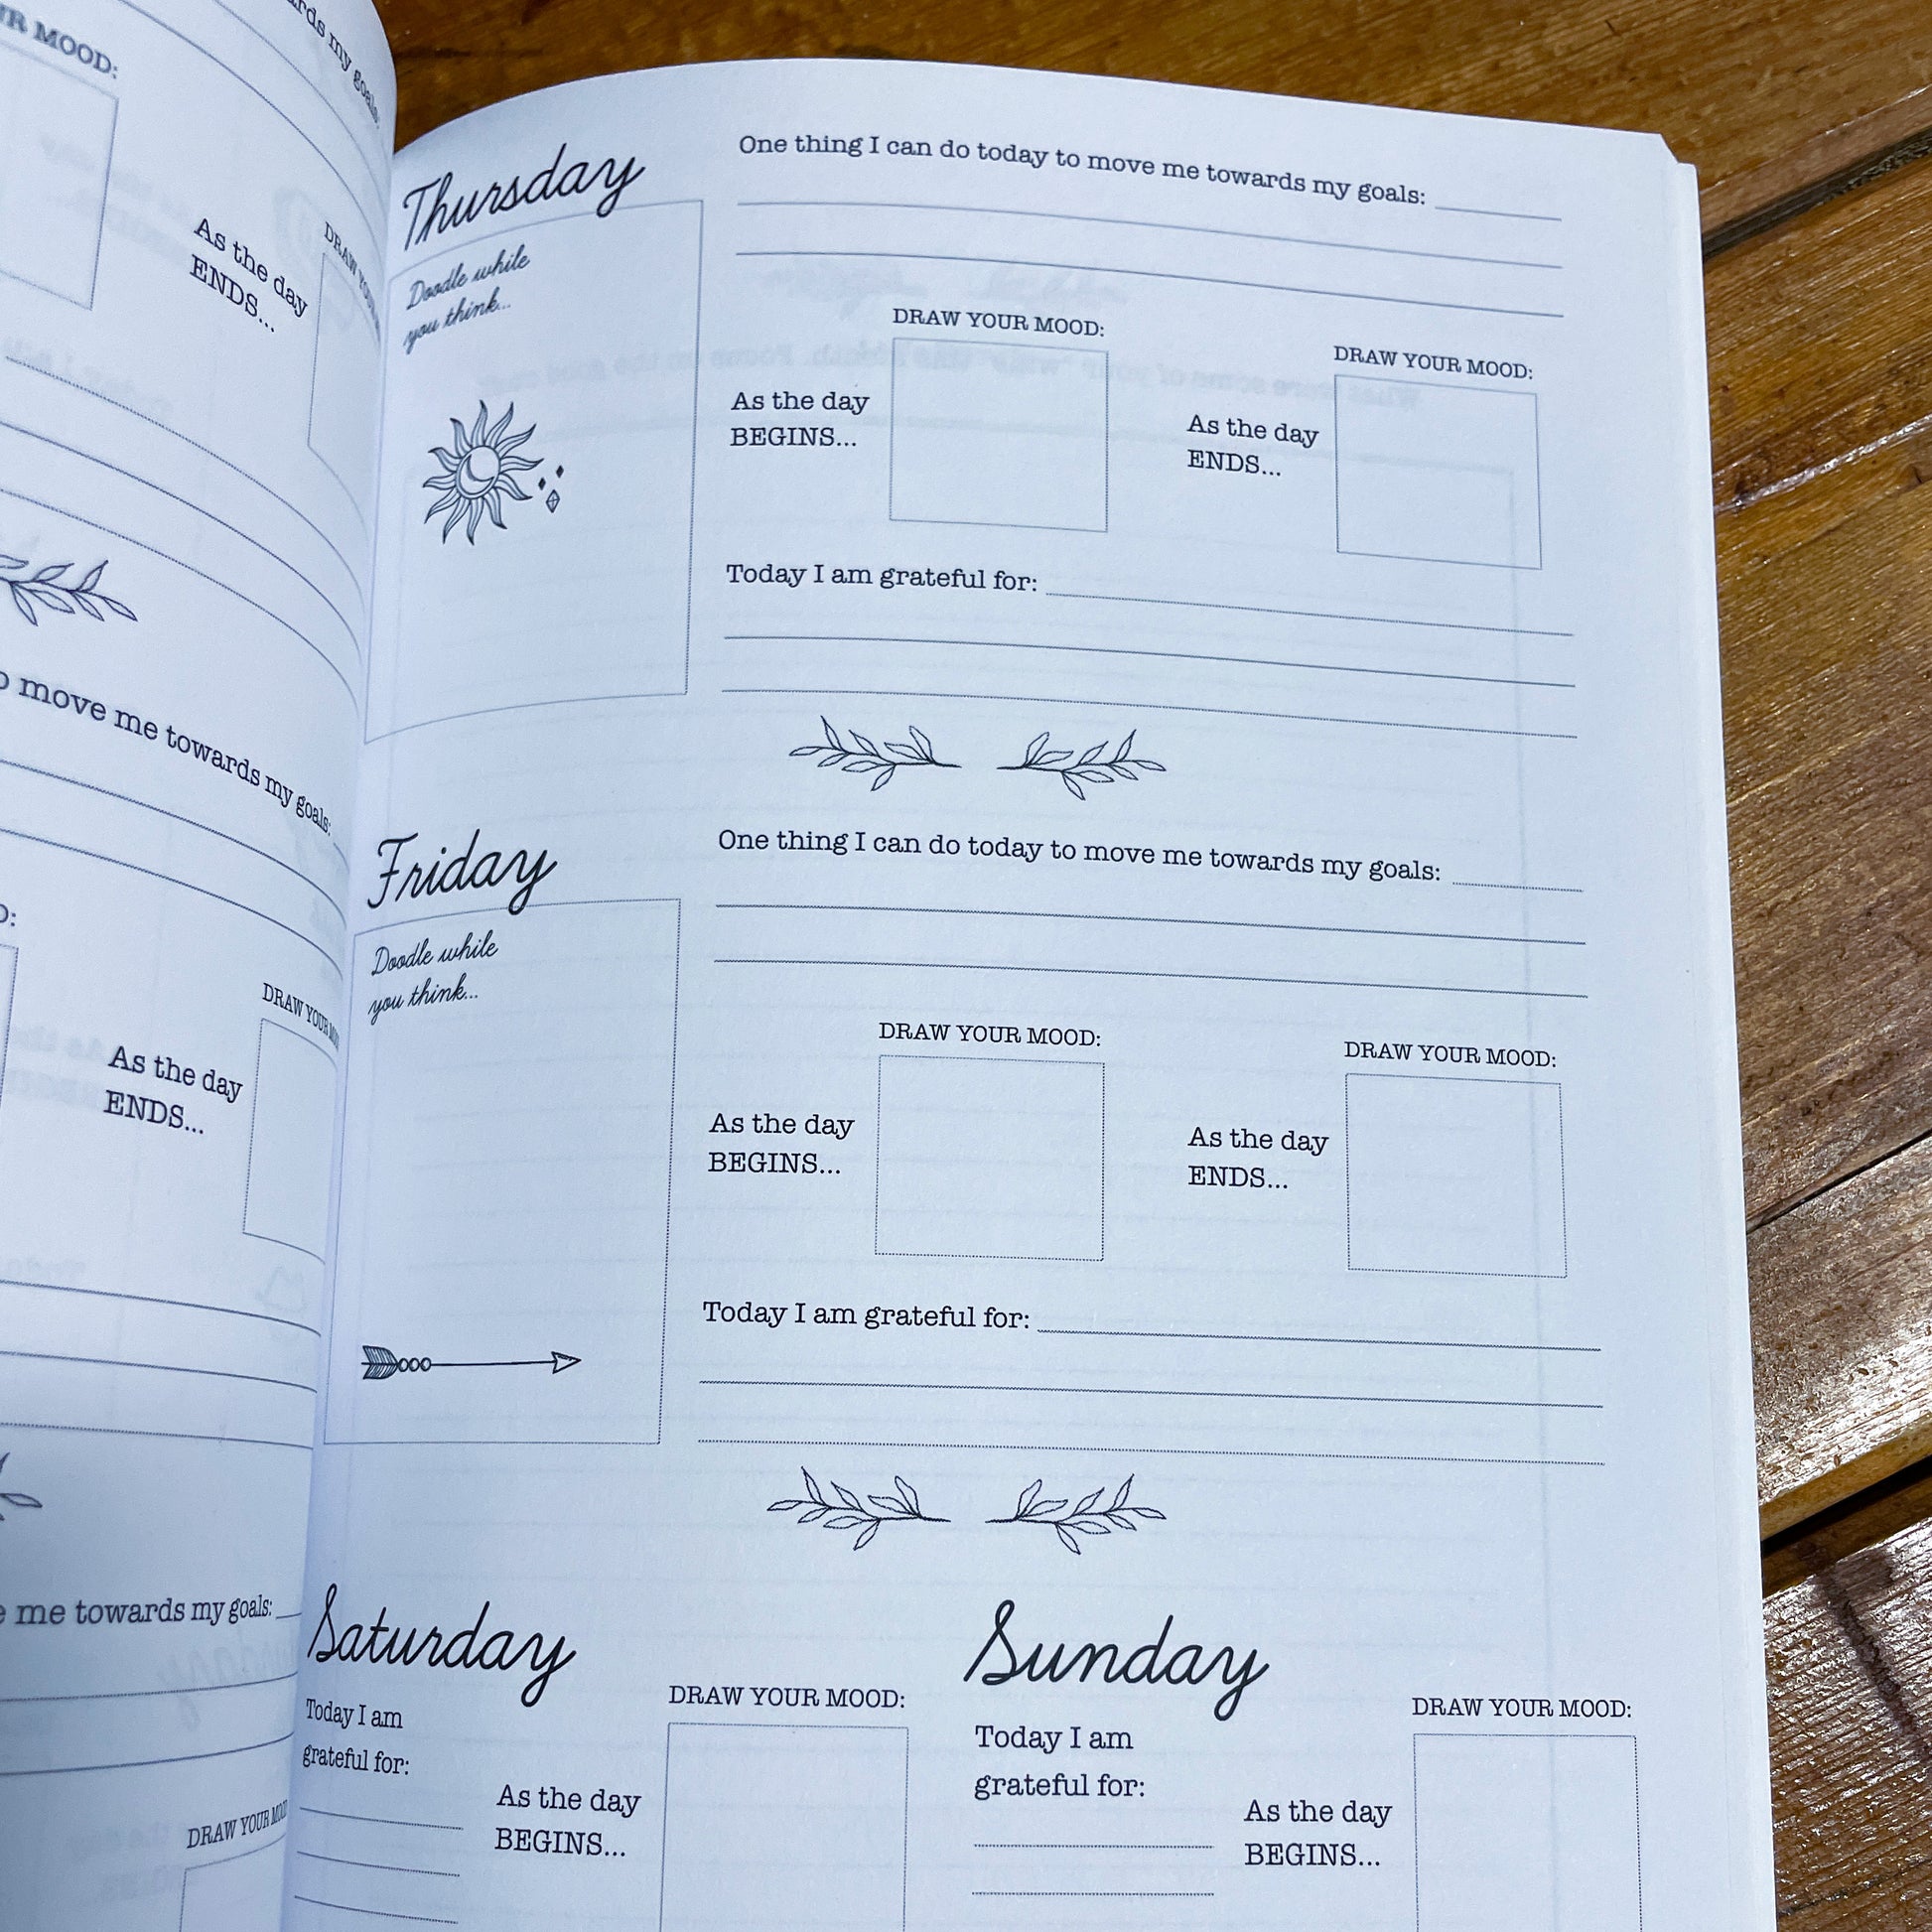 UR MOOD:
rds my goals:
As the day
ENDS...
DRAW YOUR
move me towards my goals:
DRAW YOUR
As the day
ENDS...
me towards my goals:
DRAW YOUR
Thursday
Doodle while
you think...
One thing I can do today to move me towards my goals:
DRAW YOUR MOOD:
As the day
BEGINS...
DRAW YOUR MOOD:
As the day
ENDS...
Today I am grateful for:
Friday
Doodle while
you think...
One thing I can do today to move me towards my goals:
DRAW YOUR MOOD:
As the day
BEGINS...
DRAW YOUR MOOD:
As the day
ENDS...
Today I am grateful for:
Saturday
Today I am
grateful for:
DRAW YOUR MOOD:
As the day
BEGINS...
Sunday
Today I am
grateful for:
DRAW YOUR MOOD:
As the day
BEGINS...